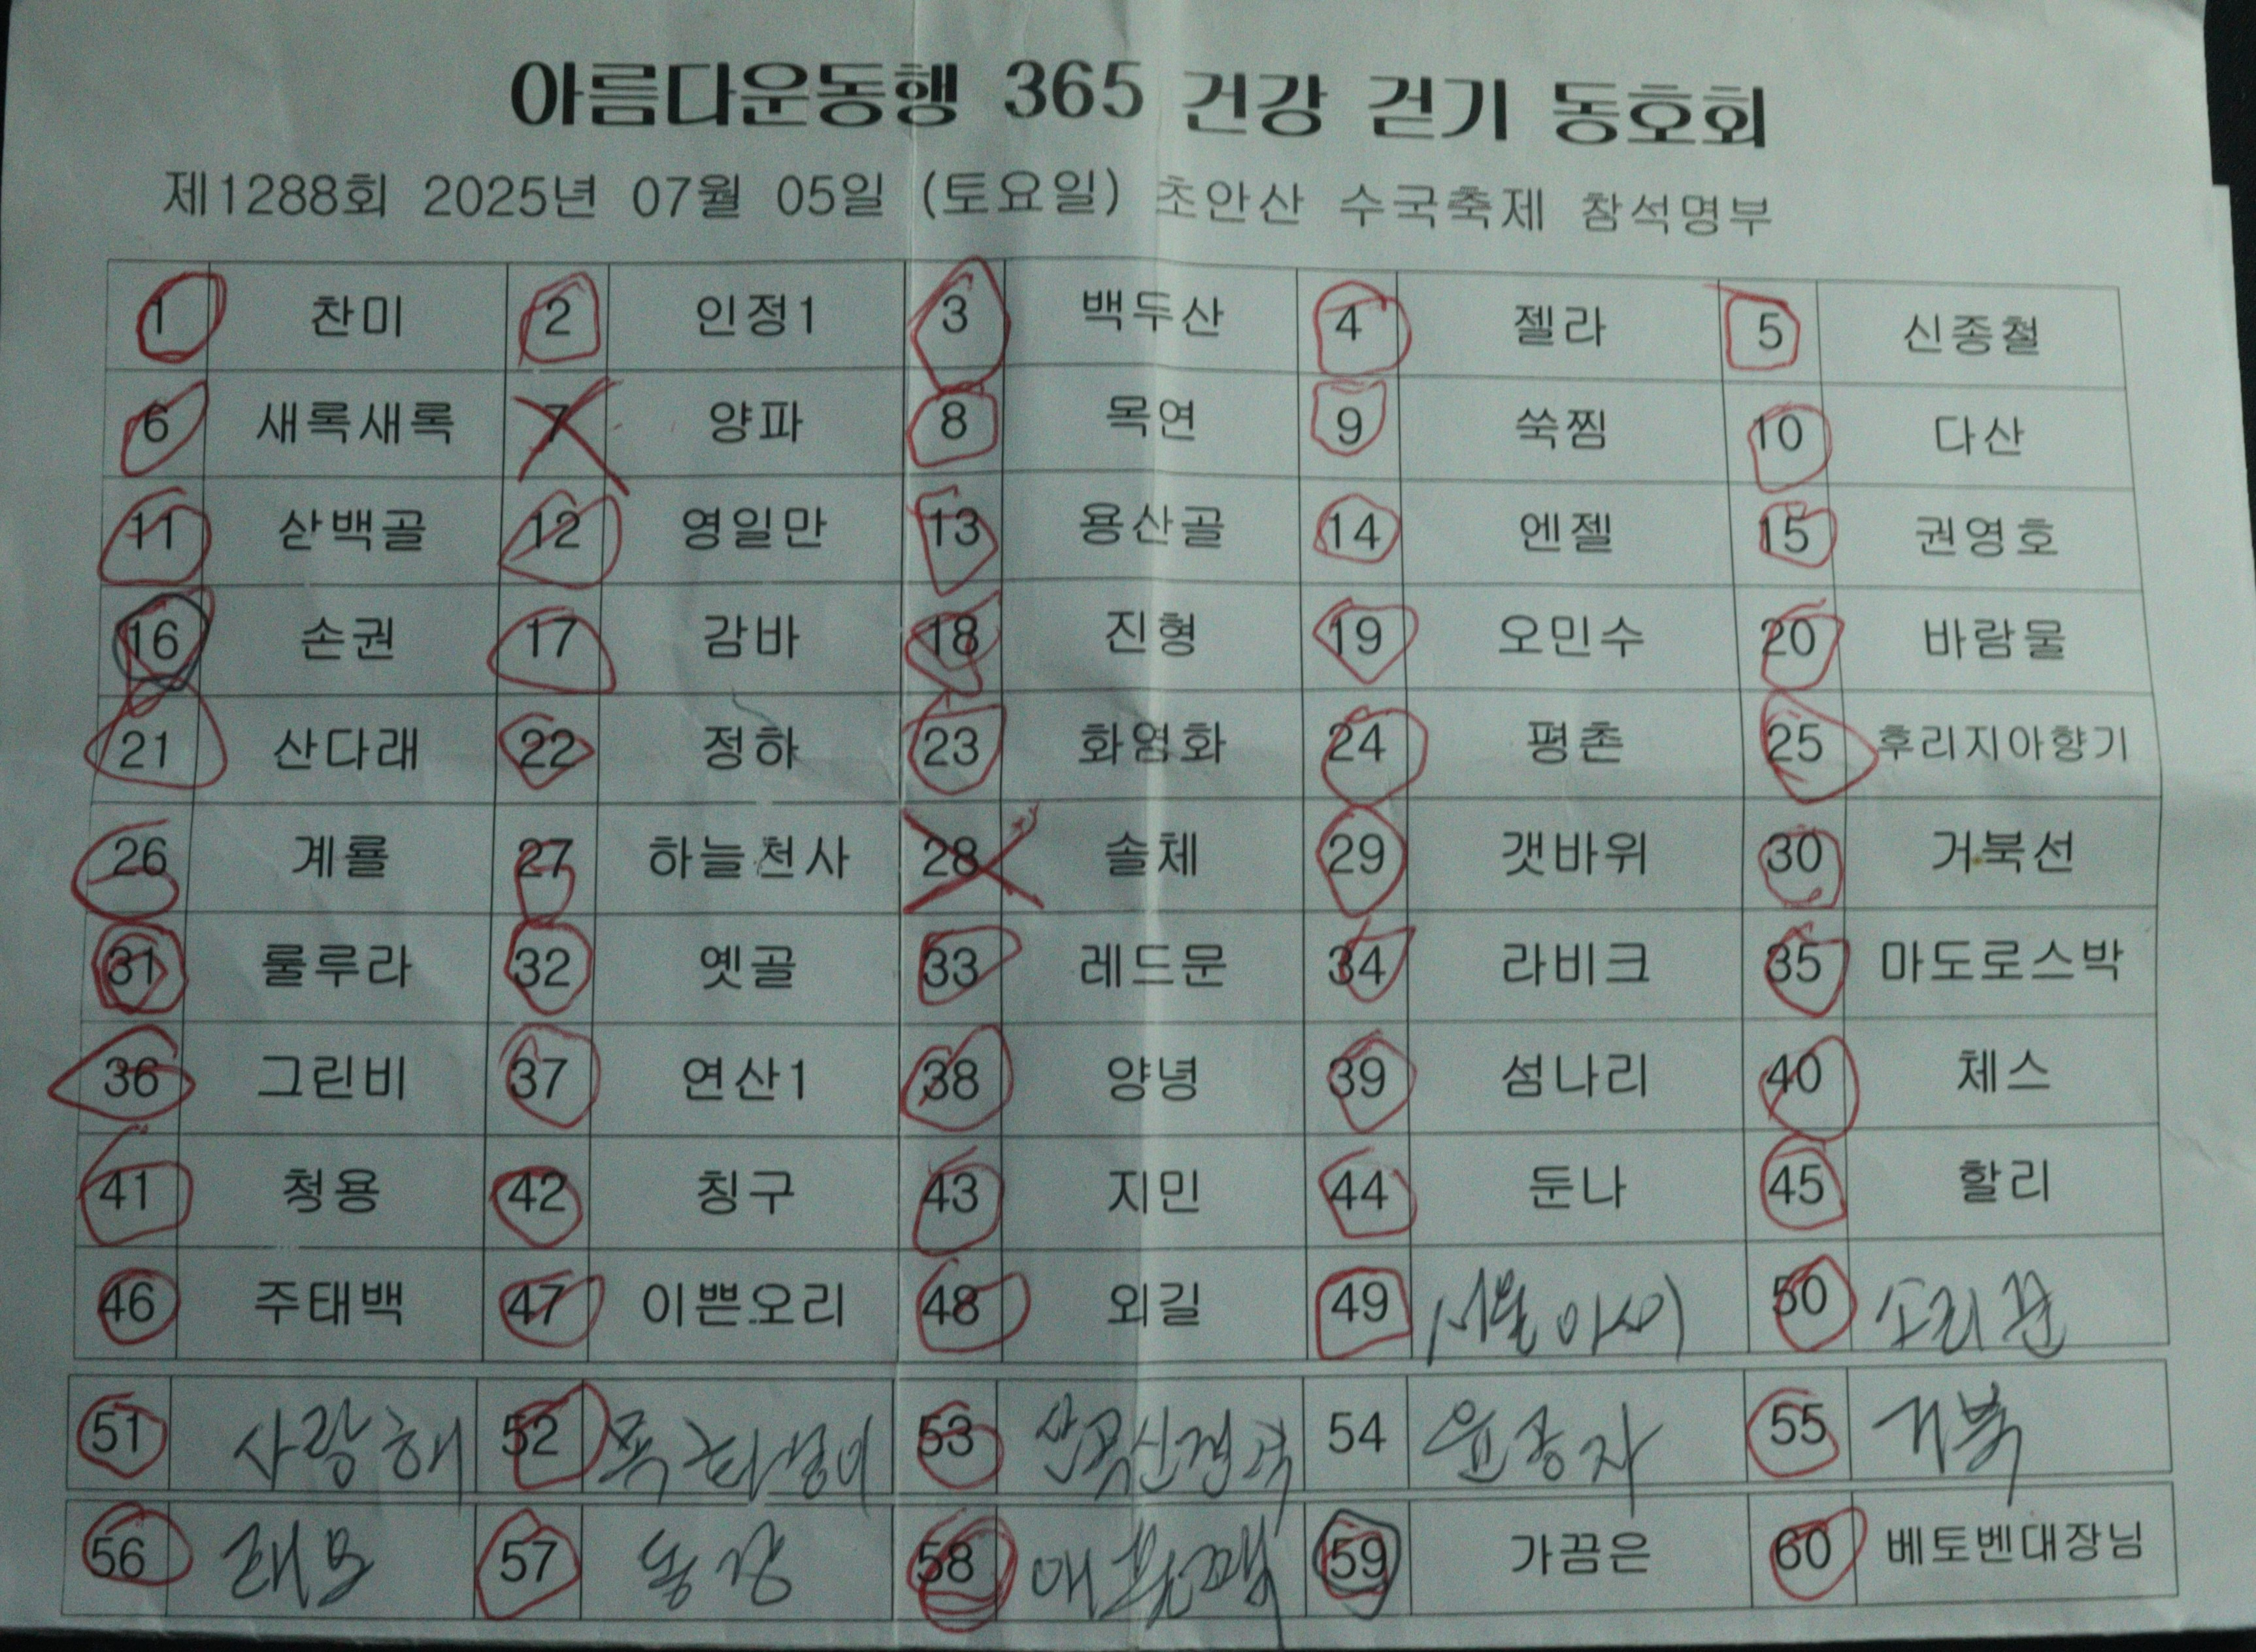 아름다운동행 365 건강 걷기 동호회
제1288회 2025년 07월 05일 (토요일) 초안산 수국축제 참석명부
1 찬미 2 인정1 3 백두산 4 젤라 5 신종철
6 새록새록 7 양파 8 목연 9 쑥찜 10 다산
11 산백골 12 영일만 13 용산골 14 엔젤 15 권영호
16 손권 17 감바 18 진형 19 오민수 20 바람물
21 산다래 22 정하 23 화염화 24 평촌 25 후리지아향기
26 계룔 27 하늘천사 28 솔체 29 갯바위 30 거북선
31 룰루라 32 옛골 33 레드문 34 라비크 35 마도로스박
36 그린비 37 연산1 38 양녕 39 섬나리 40 체스
41 청용 42 칭구 43 지민 44 둔나 45 할리
46 주태백 47 이쁜오리 48 외길 49 50
51 사랑해 52 53 54 윤공자 55 거북
56 57 58 59 가끔은 60 베토벤대장님